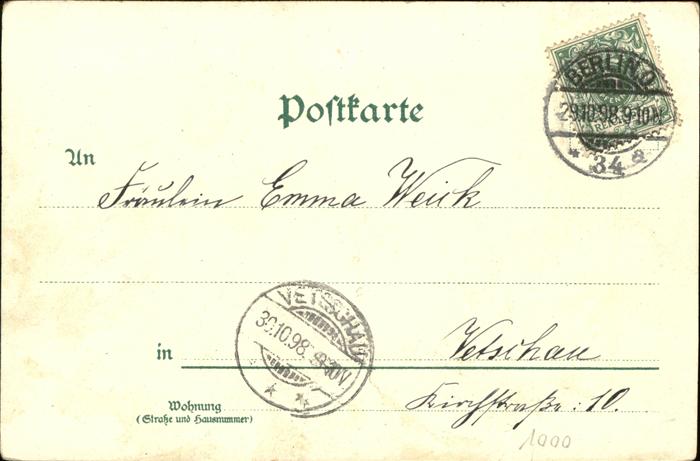 BERLIN.O.
29.10.98.9-10N.
* 34 a
Poſtkarte
An
Fräulein Emma Weick
VETSCHAU
30.10.98.
in Vetschau
Wohnung
(Straße und Hausnummer)
Kirchstraße: 10.
1000